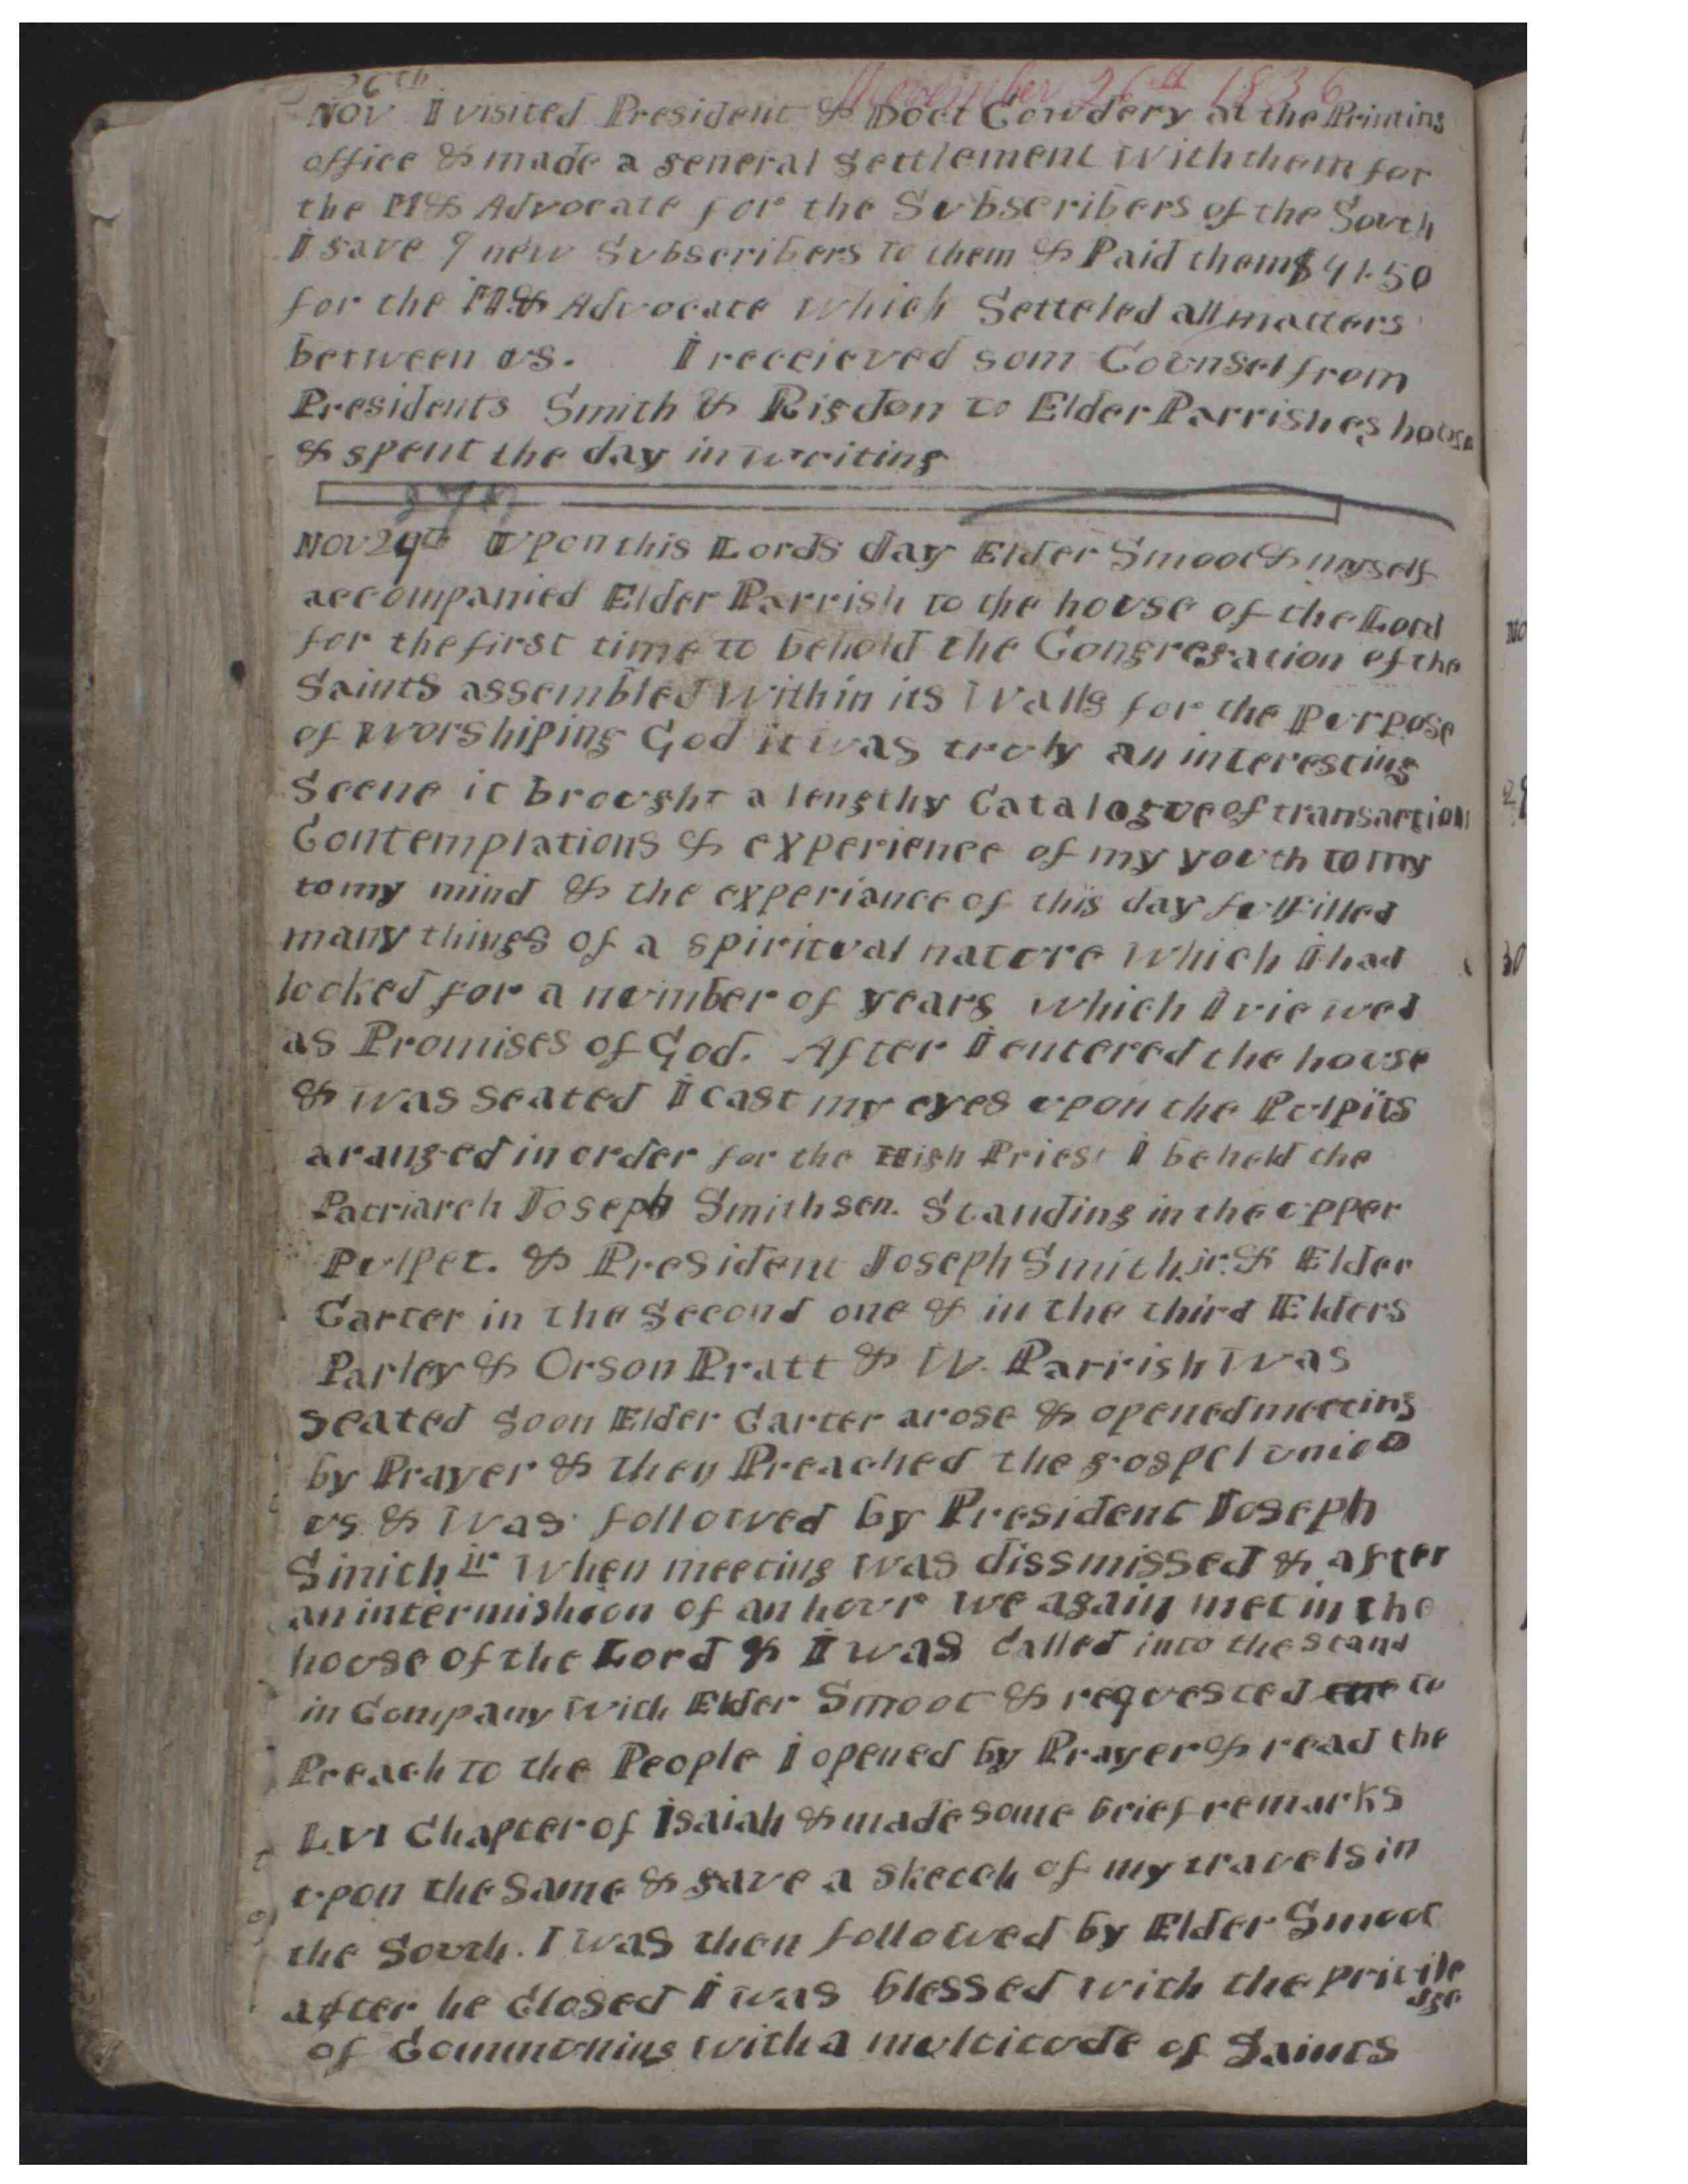 November 26th 1836
26th
Nov I visited President & Doct Cowdery at the Printing
office & made a general settlement with them for
the M& Advocate for the Subscribers of the South
I gave 9 new Subscribers to them & Paid them $41.50
for the M& Advocate which Setteled all matters
between us. I receieved som Counsel from
Presidents Smith & Rigdon to Elder Parrishes house
& spent the day in writing
27th
Nov 29th Upon this Lords day Elder Smoot & myself
accompanied Elder Parrish to the house of the Lord
for the first time to behold the Congregation of the
Saints assembled within its walls for the Purpose
of worshiping God it was truly an interesting
Scene it brought a lengthy Catalogue of transaction
Contemplations & experience of my youth to my
to my mind & the experiance of this day fulfilled
many things of a spiritual nature which I had
looked for a number of years which I viewed
as Promises of God. After I entered the house
& was seated I cast my eyes upon the Pulpits
aranged in order for the High Priest I beheld the
Patriarch Joseph Smith sen. Standing in the upper
Pulpet. & President Joseph Smith jr. & Elder
Carter in the Second one & in the third Elders
Parley & Orson Pratt & W. Parrish was
seated Soon Elder Carter arose & opened meeting
by Prayer & then Preached the gospel unto
us & was followed by President Joseph
Smith jr When meeting was dissmissed & after
an intermishion of an hour we again met in the
house of the Lord & I was Called into the stand
in Company with Elder Smoot & requested to
Preach to the People I opened by Prayer & read the
LVI Chapter of Isaiah & made some brief remarks
upon the Same & gave a sketch of my travels in
the South. I was then followed by Elder Smoot
after he Closed I was blessed with the privile
dge
of Communing with a multitude of Saints